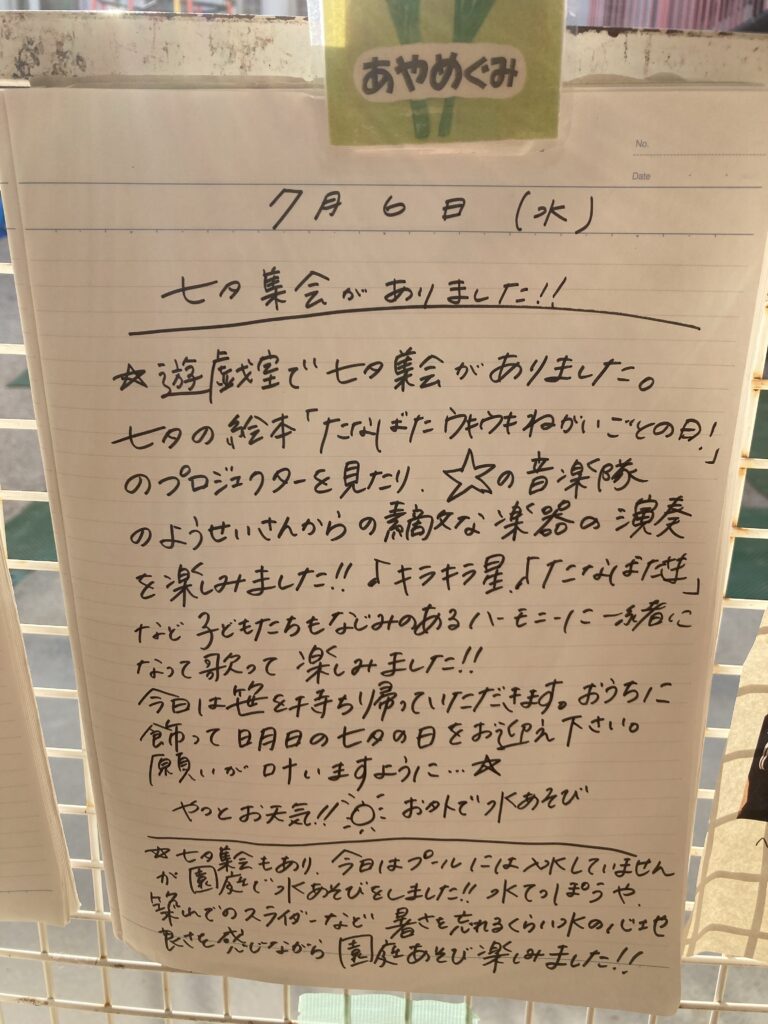 あやめぐみ
No.
Date
7月6日(水)
七夕集会がありました!!
☆遊戯室で七夕集会がありました。
七夕の絵本「たなばたウキウキねがいごとの日!」
のプロジェクターを見たり、☆の音楽隊
のようせいさんからの素敵な楽器の演奏
を楽しみました!!♪キラキラ星、♪「たなばたさま」
など子どもたちもなじみのあるハーモニーに一緒に
なって歌って楽しみました!!
今日は笹を持ち帰っていただきます。おうちに
飾って明日の七夕の日をお迎え下さい。
願いが叶いますように…☆
やっとお天気!!お外で水あそび
☆七夕集会もあり、今日はプールには入水していません
が園庭で水あそびをしました!!水てっぽうや、
築山でのスライダーなど暑さを忘れるくらい水の心地
良さを感じながら園庭あそび楽しみました!!